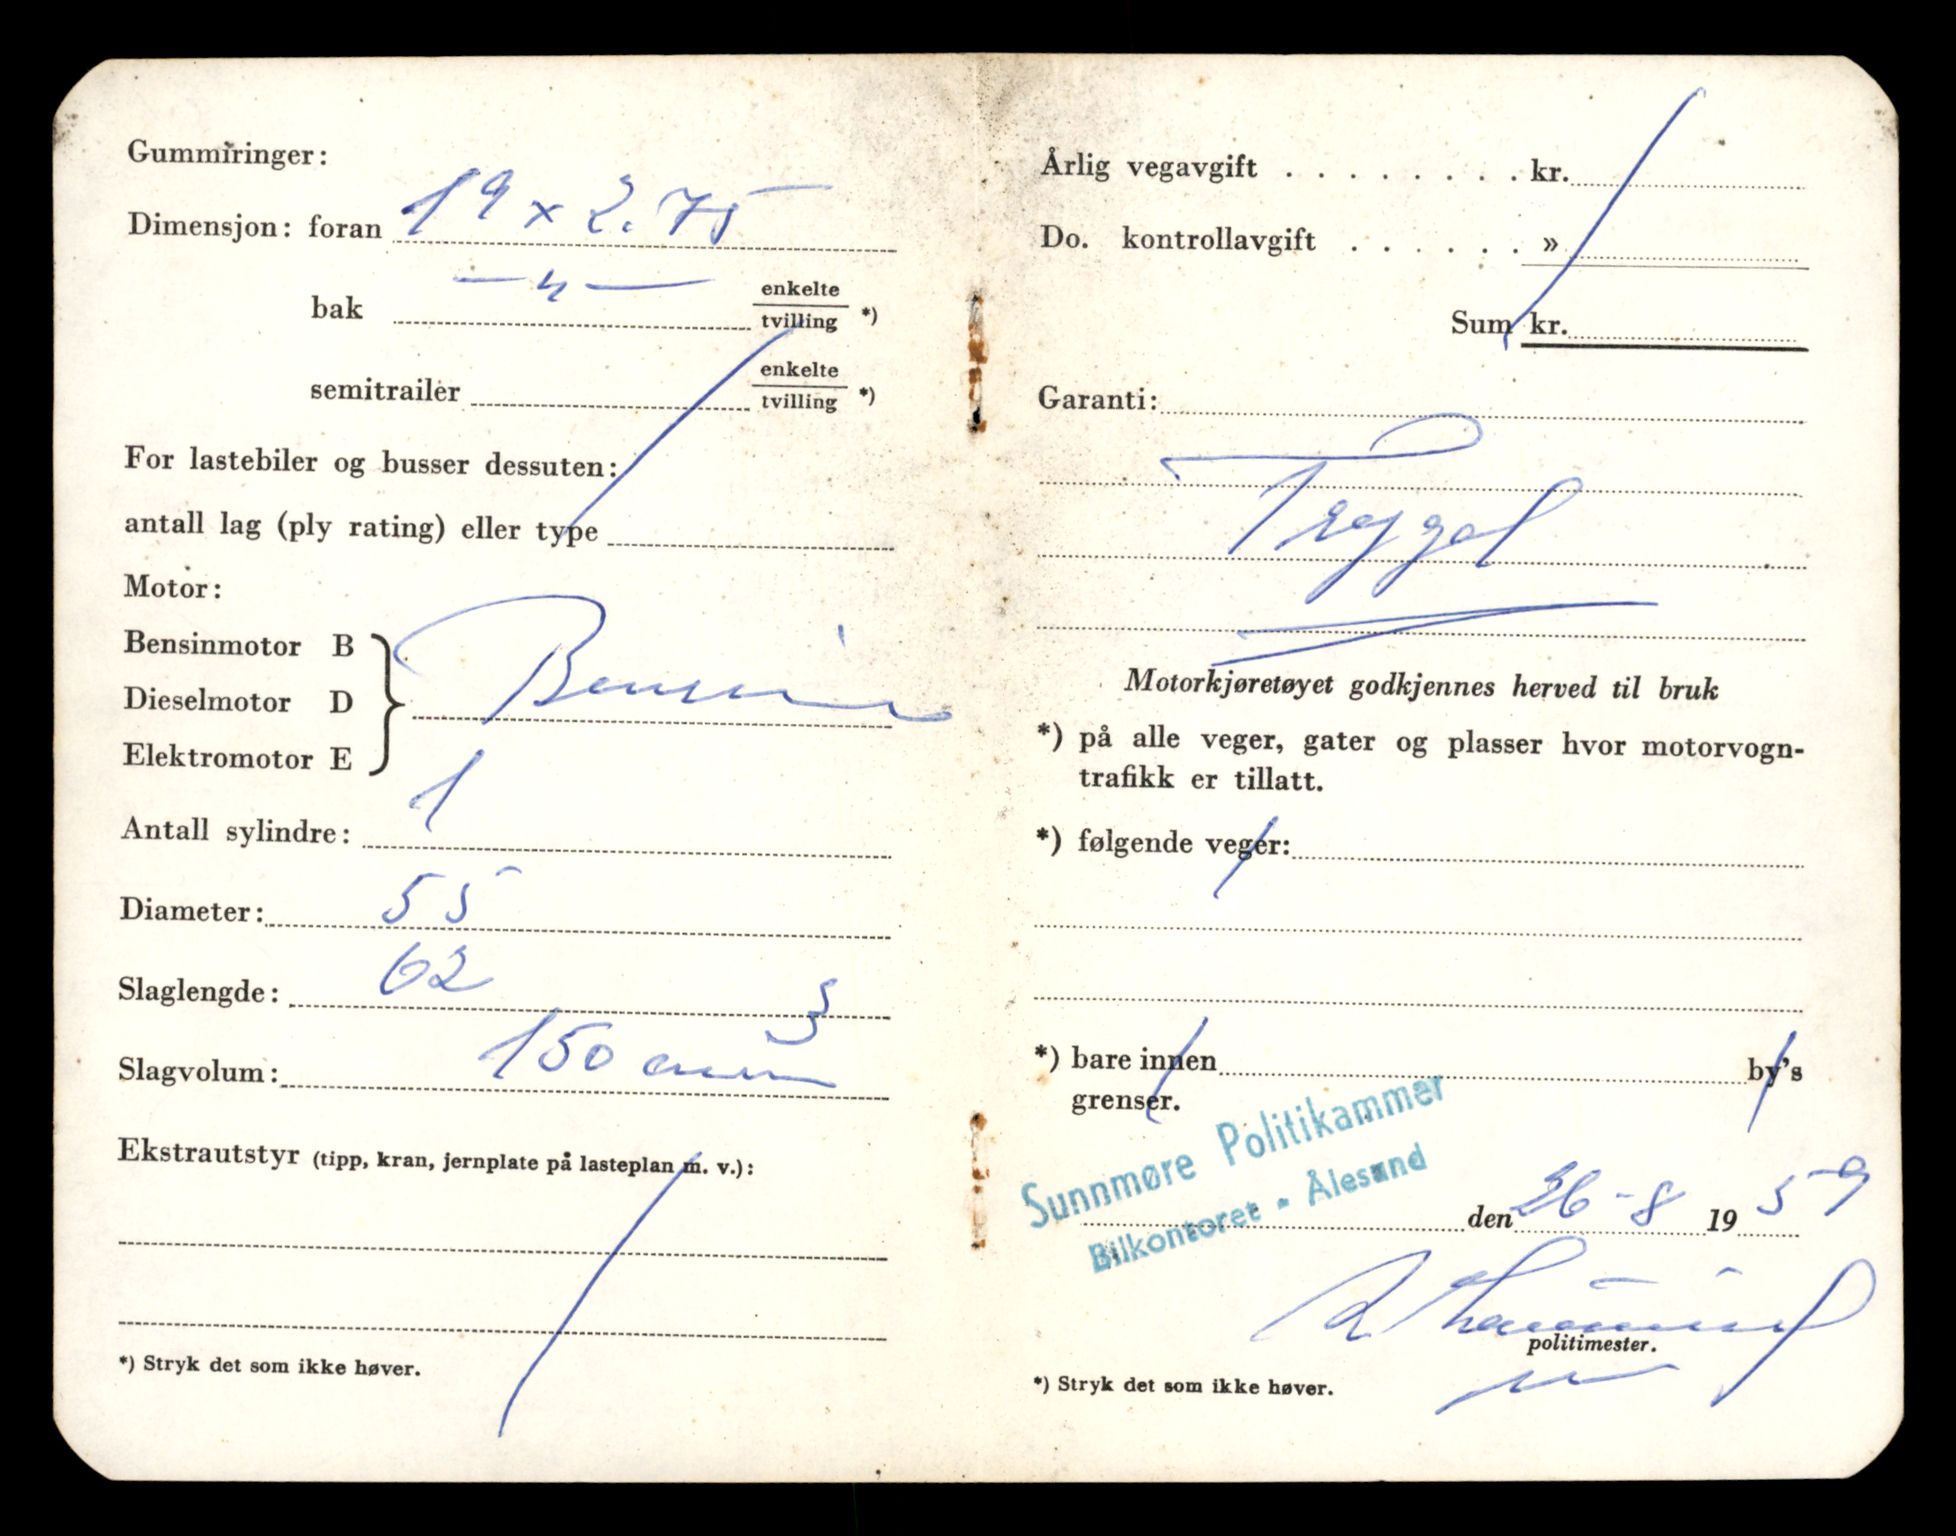 Gummiringer:
Dimensjon: foran 19 x 2.75
bak —„— enkelte
tvilling *)
semitrailer enkelte
tvilling *)
For lastebiler og busser dessuten:
antall lag (ply rating) eller type
Motor:
Bensinmotor B
Dieselmotor D Bensin
Elektromotor E
Antall sylindre: 1
Diameter: 55
Slaglengde: 62
Slagvolum: 150 cm³
Ekstrautstyr (tipp, kran, jernplate på lasteplan m. v.):
*) Stryk det som ikke høver.
Årlig vegavgift . . . . . . . . kr.
Do. kontrollavgift . . . . . . »
Sum kr.
Garanti:
Motorkjøretøyet godkjennes herved til bruk
*) på alle veger, gater og plasser hvor motorvogn-
trafikk er tillatt.
*) følgende veger:
*) bare innen by's
grenser.
Sunnmøre Politikammer
Bilkontoret - Ålesund
den 26-8 1959
politimester.
*) Stryk det som ikke høver.